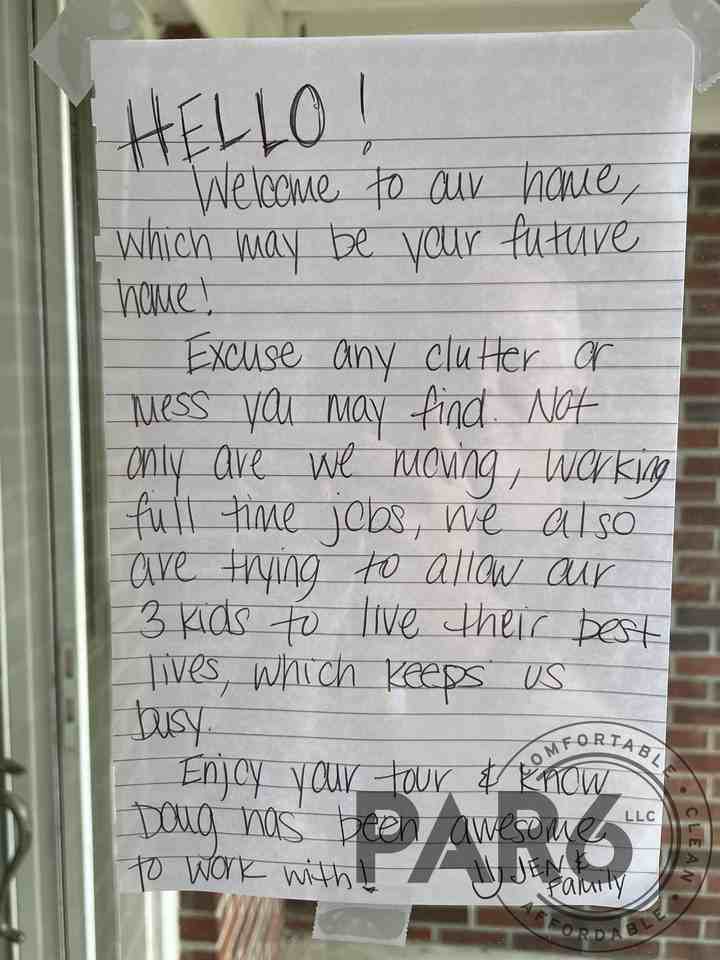 HELLO!
Welcome to our home,
which may be your future
home!
Excuse any clutter or
mess you may find. Not
only are we moving, working
full time jobs, we also
are trying to allow our
3 kids to live their best
lives, which keeps us
busy.
Enjoy your tour & know
Doug has been awesome
to work with!
JEN &
Family
COMFORTABLE • CLEAN • AFFORDABLE
PAR6 LLC